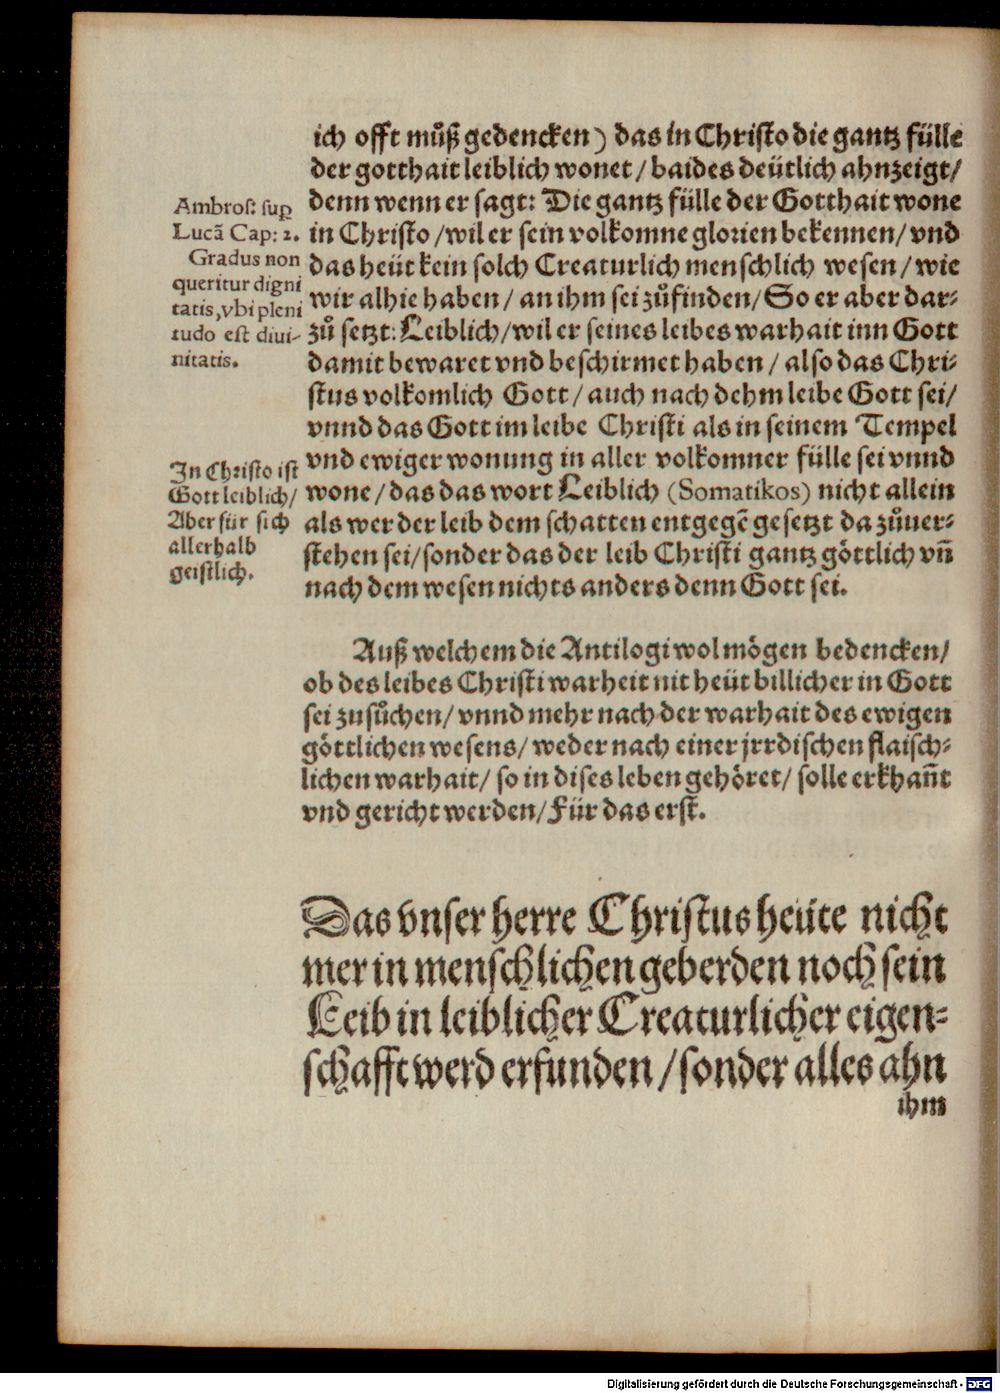 ich offt můß gedencken) das in Christo die gantz fülle
der gotthait leiblich wonet / baides deütlich ahnzeigt /
denn wenn er sagt: Die gantz fülle der Gotthait wone
in Christo / wil er sein volkomne glorien bekennen / vnd
das heüt kein solch Creaturlich menschlich wesen / wie
wir alhie haben / an ihm sei zůfinden / So er aber dar⸗
zů setzt: Leiblich / wil er seines leibes warhait inn Gott
damit bewaret vnd beschirmet haben / also das Chri⸗
stus volkomlich Gott / auch nach dehm leibe Gott sei /
vnnd das Gott im leibe Christi als in seinem Tempel
vnd ewiger wonung in aller volkomner fülle sei vnnd
wone / das das wort Leiblich (Somatikos) nicht allein
als wer der leib dem schatten entgegē gesetzt da zůuer⸗
stehen sei / sonder das der leib Christi gantz göttlich vn̄
nach dem wesen nichts anders denn Gott sei.
Ambros: suꝑ
Lucā Cap: 2.
Gradus non
queritur digni
tatis, vbi pleni
tudo est diui-
nitatis.
In Christo ist
Gott leiblich /
Aber für sich
allerhalb
geistlich.
Auß welchem die Antilogi wol mögen bedencken /
ob des leibes Christi warheit nit heüt billicher in Gott
sei zusůchen / vnnd mehr nach der warhait des ewigen
göttlichen wesens / weder nach einer jrrdischen flaisch⸗
lichen warhait / so in dises leben gehöret / solle erkhan̄t
vnd gericht werden / Für das erst.
Das vnser herre Christus heüte nicht
mer in menschlichen geberden noch sein
Leib in leiblicher Creaturlicher eigen⸗
schafft werd erfunden / sonder alles ahn
ihm
Digitalisierung gefördert durch die Deutsche Forschungsgemeinschaft - DFG